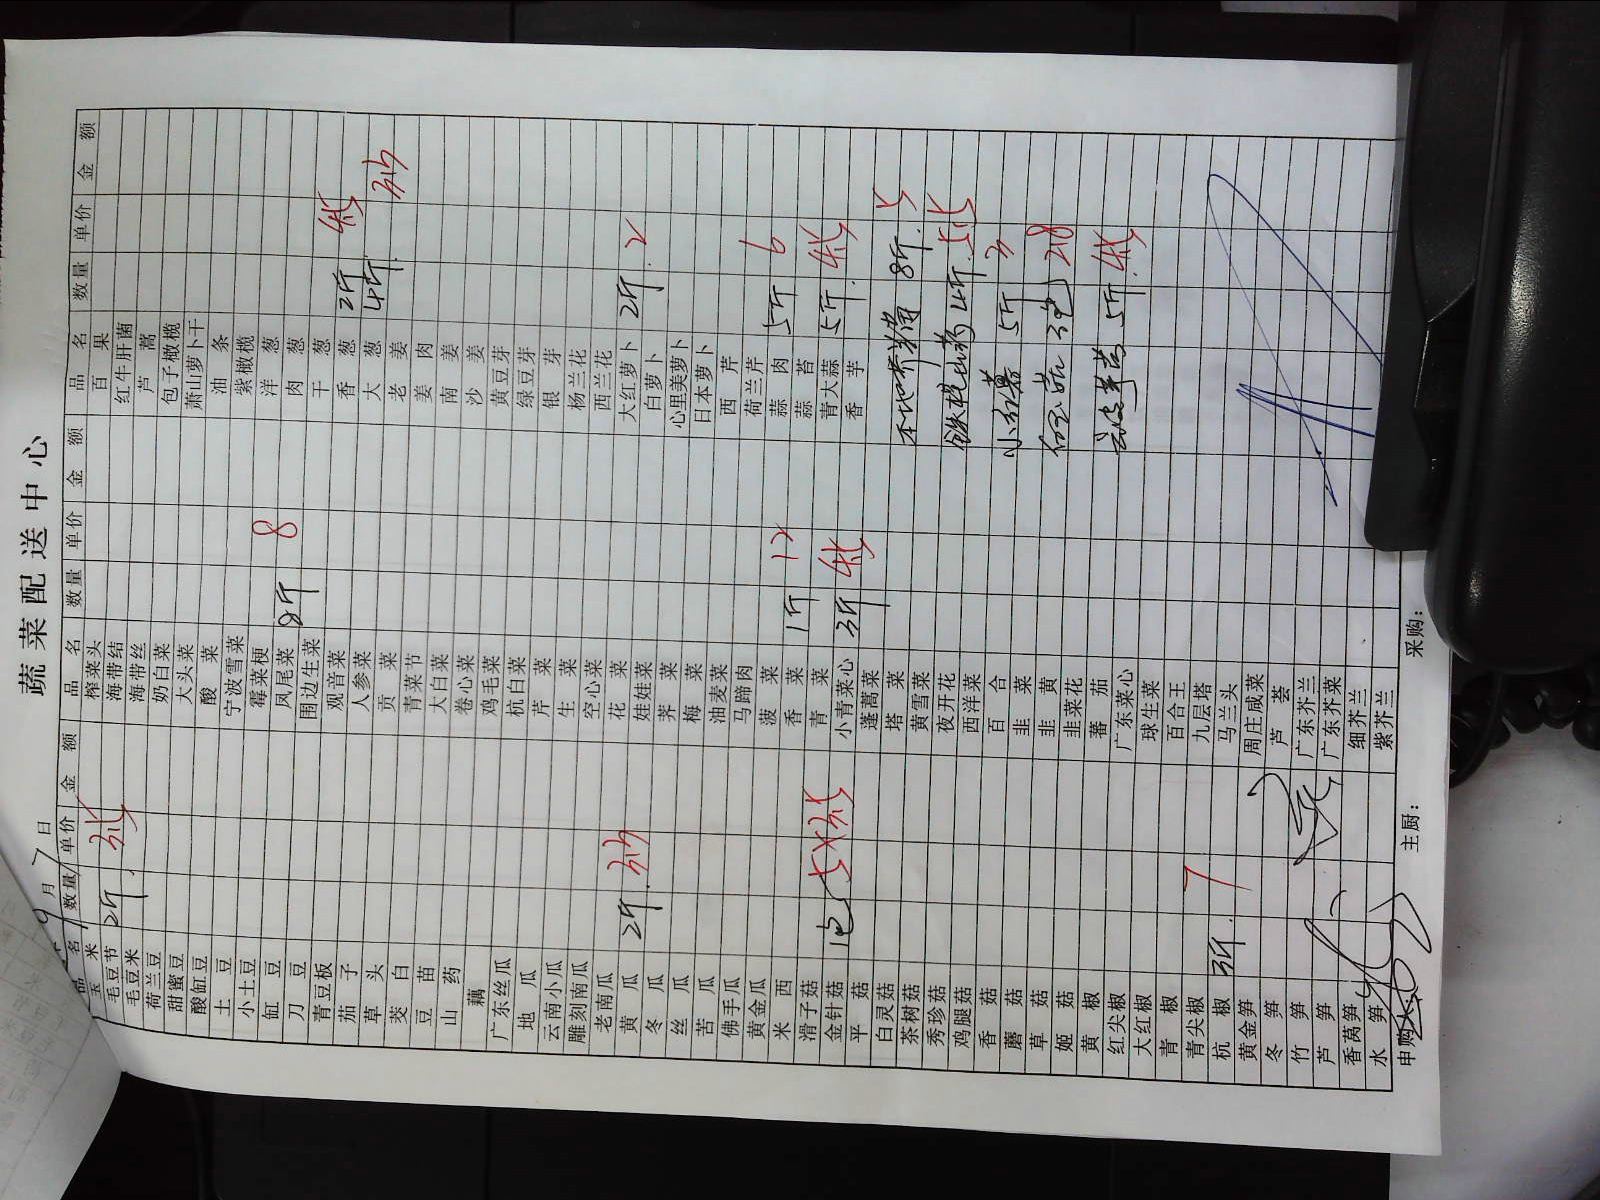 蔬菜配送中心
9月7日
品名 数量 单价 金额 品名 数量 单价 金额 品名 数量 单价 金额
玉米 榨菜头 百果
毛豆节 海带结 红牛肝菌
毛豆米 2斤 海带丝 芦蒿
荷兰豆 奶白菜 包子橄榄
甜蜜豆 大头菜 萧山萝卜干
酸缸豆 酸菜 油条
土豆 宁波雪菜 紫橄榄
小土豆 霉菜梗 洋葱
缸豆 凤尾菜 8斤 8 肉葱
刀豆 围边生菜 干葱
青豆板 观音菜 香葱 2斤
茄子 人参菜 大葱 4斤
草头 贡菜 老姜
茭白 青菜节 姜肉
豆苗 大白菜 南姜
山药 卷心菜 沙姜
藕 鸡毛菜 黄豆芽
广东丝瓜 杭白菜 绿豆芽
地瓜 芹菜 银芽
云南小瓜 生菜 杨兰花
雕刻南瓜 空心菜 西兰花
老南瓜 花菜 大红萝卜 2斤 2
黄瓜 2斤 娃娃菜 白萝卜
冬瓜 荠菜 心里美萝卜
丝瓜 梅菜 日本萝卜
苦瓜 油麦菜 西芹
佛手瓜 马蹄肉 荷兰芹
黄金瓜 菠菜 蒜肉 5斤 6
米西 香菜 1斤 12 蒜苔
滑子菇 青菜 青大蒜 5斤
金针菇 1包 小青菜心 3斤 香芋
平菇 蓬蒿菜
白灵菇 塔菜 本地 8斤 5
茶树菇 黄雪菜
秀珍菇 夜开花 铁棍山药 4斤
鸡腿菇 西洋菜
香菇 百合 小 5斤 3
蘑菇 韭菜
草菇 韭黄 3包 28
姬菇 韭菜花
黄椒 蕃茄 5斤
红尖椒 广东菜心
大红椒 球生菜
青椒 百合王
青尖椒 九层塔
杭椒 3斤 7 马兰头
黄金笋 周庄咸菜
冬笋 芦荟
竹笋 广东芥兰
芦笋 广东芥菜
香莴笋 细芥兰
水笋 紫芥兰
申购 主厨: 采购: